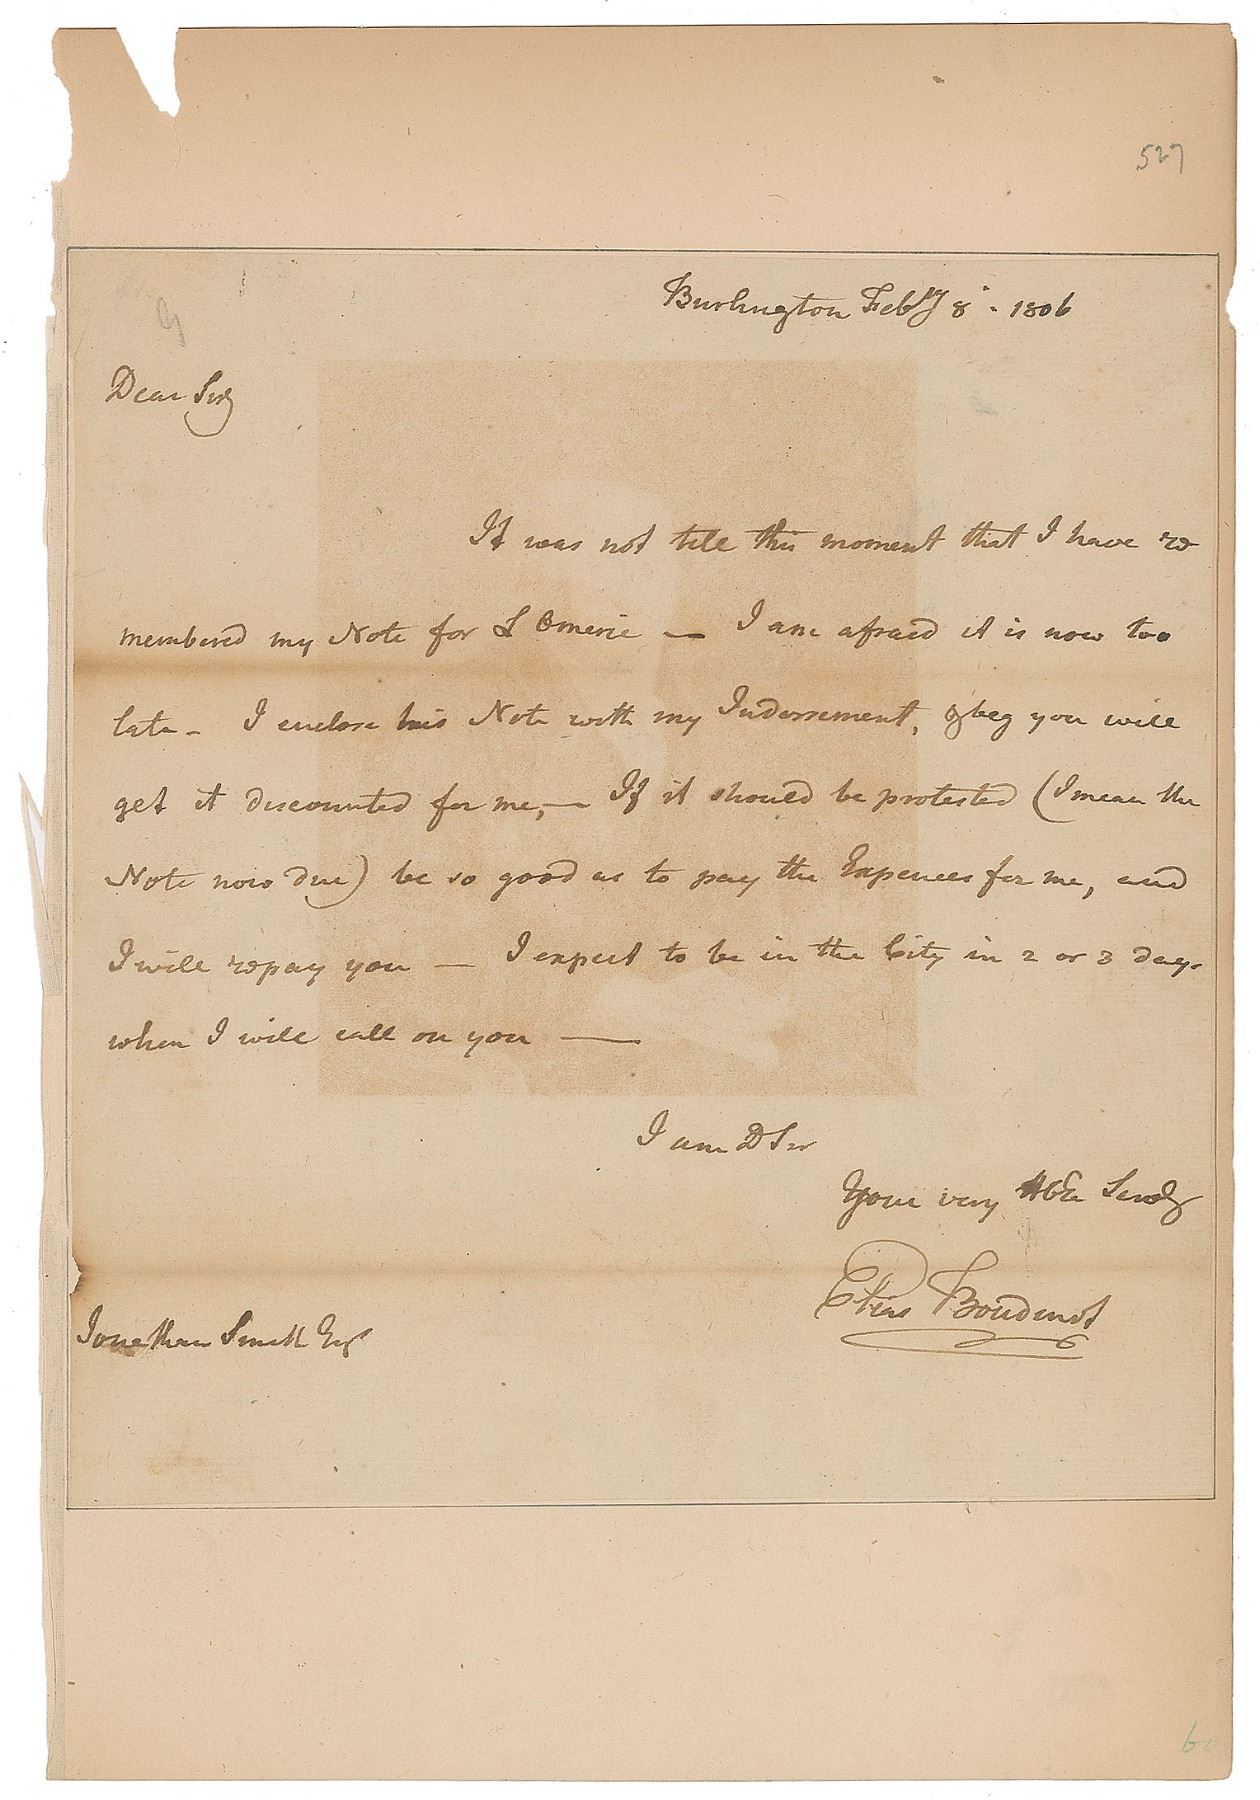 527
Burlington Feby 8th. 1806
Dear Sir
It was not till this moment that I have re
membered my Note for L — I am afraid it is now too
late - I enclose his Note with my Indorsement, & beg you will
get it discounted for me, — If it should be protested (I mean the
Note now due) be so good as to pay the Expences for me, and
I will repay you — I expect to be in the City in 2 or 3 days
when I will call on you —
I am D Sir
Your very Hble Servt
Elias Boudinot
Jonathan Smith Esqr